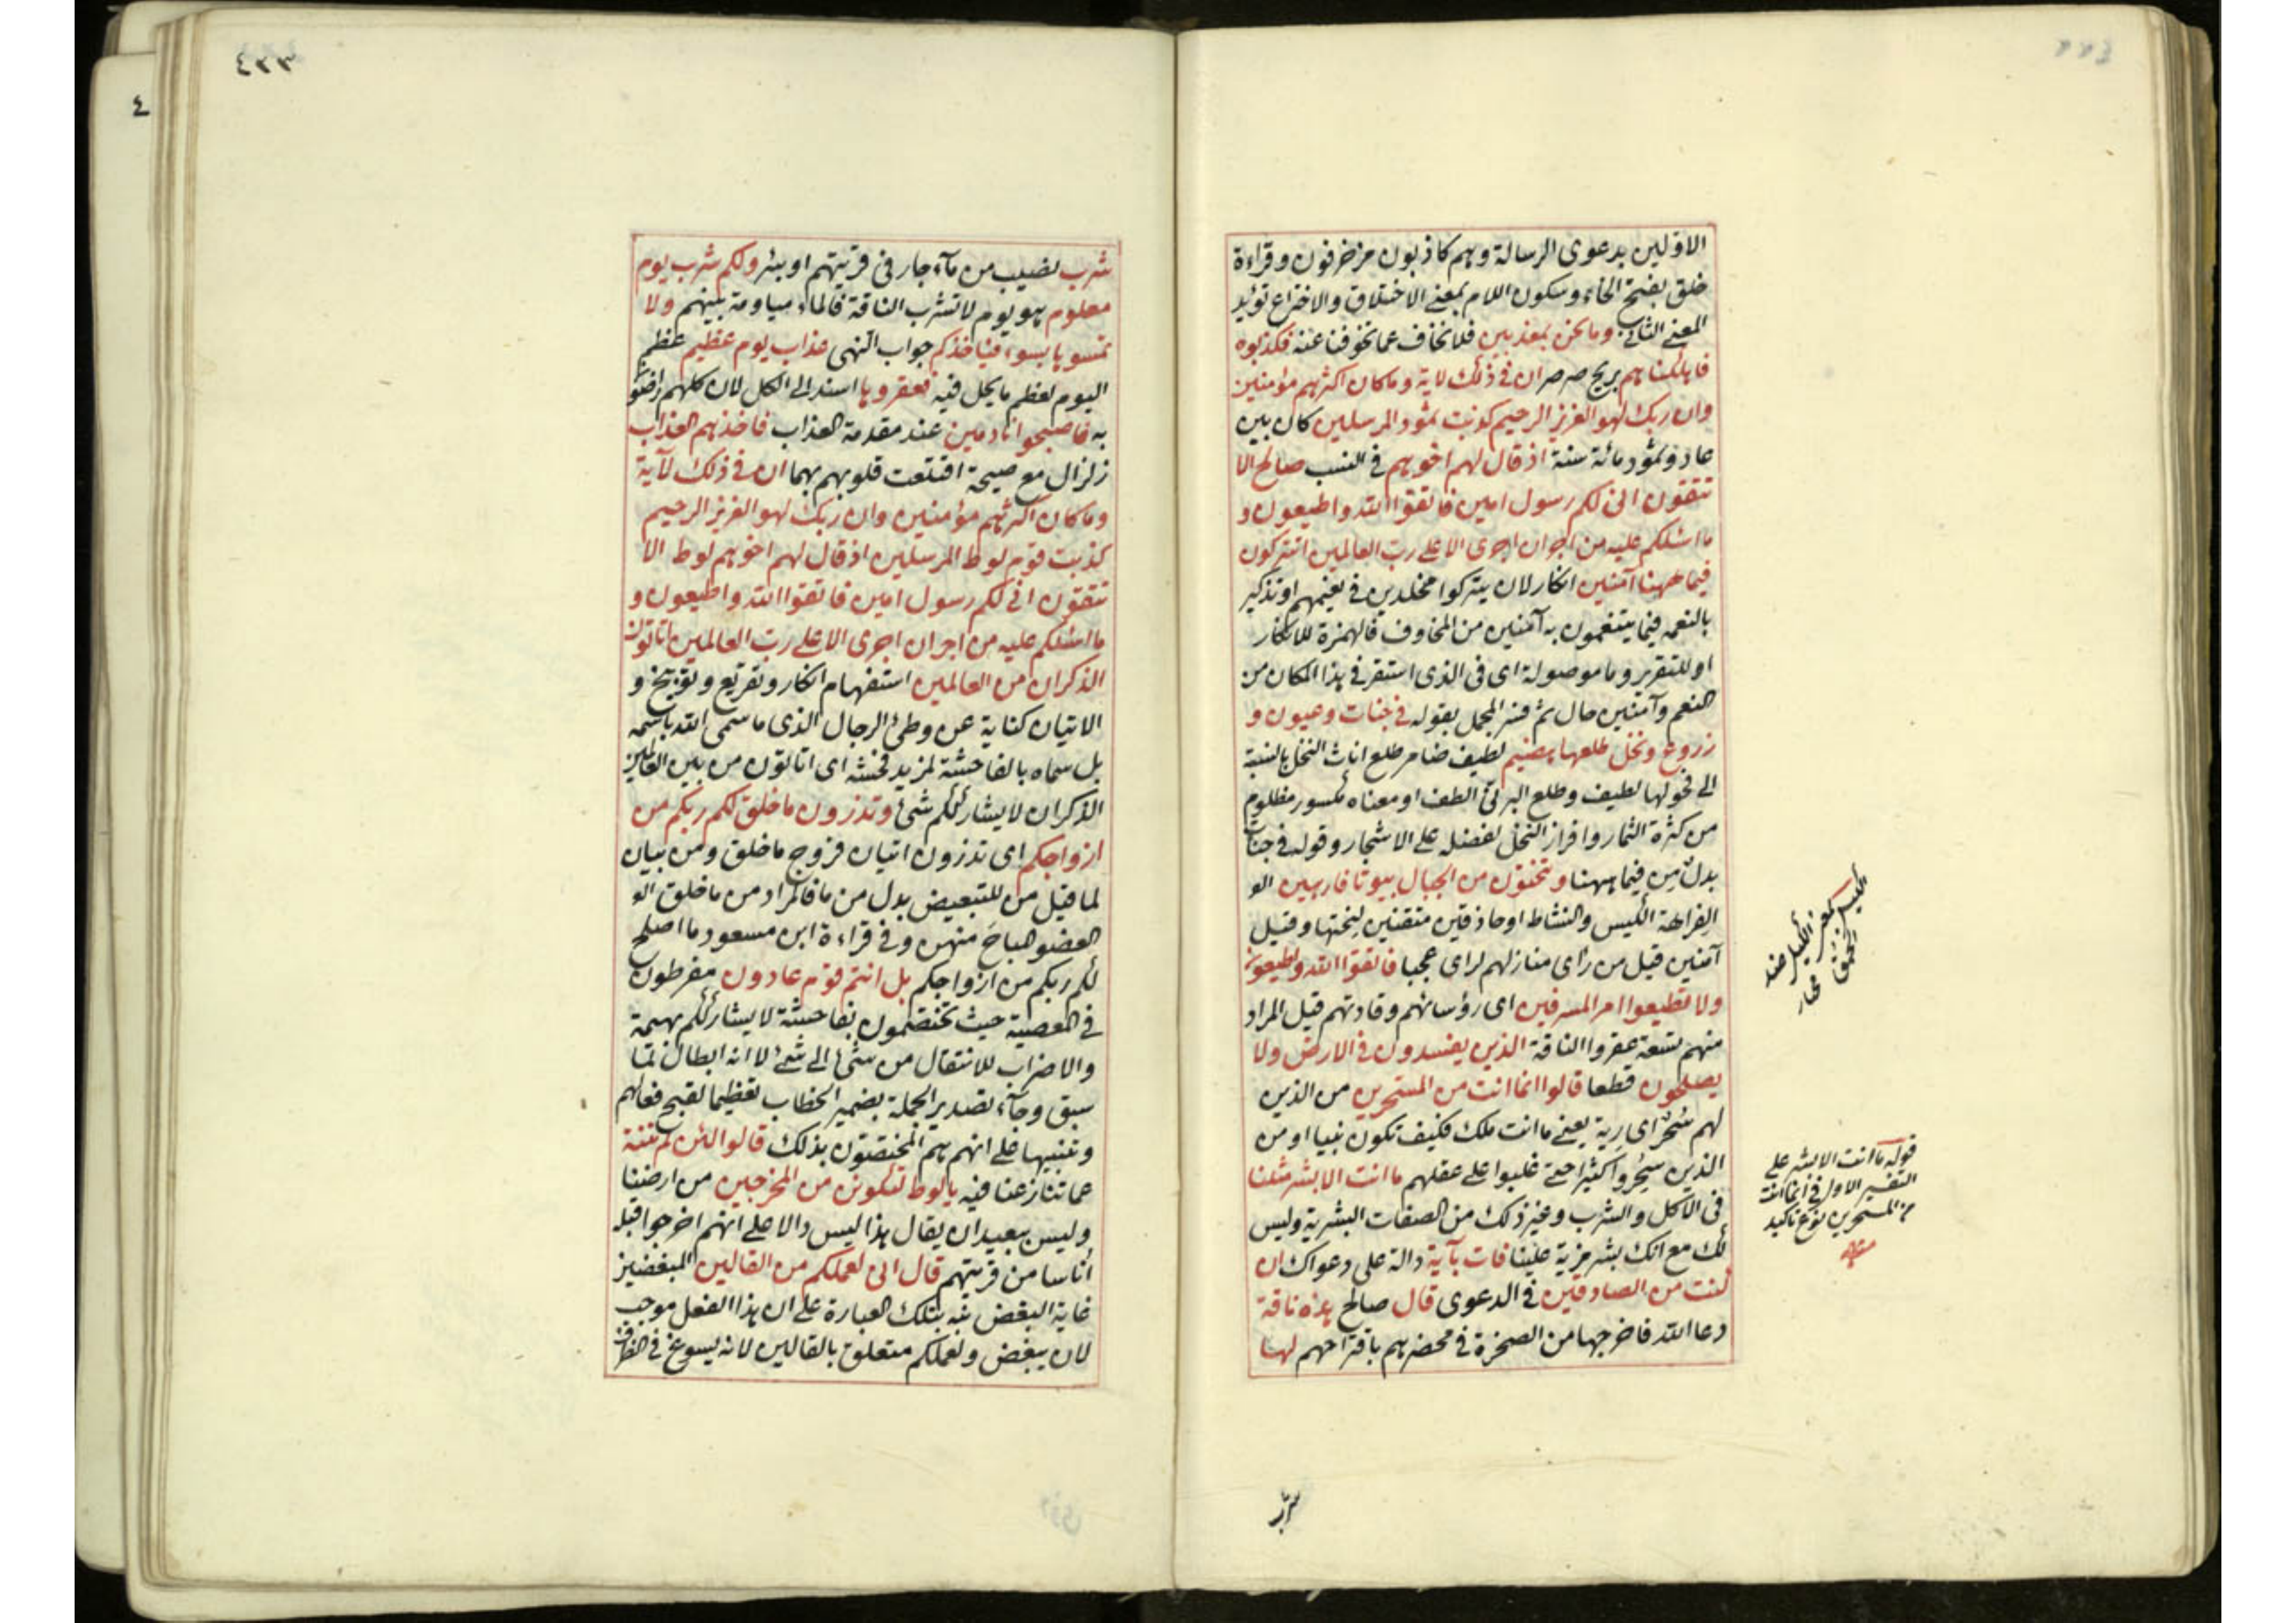 الاولين بدعوى الرسالة وهم كاذبون مزخرفون وقراءة
خلق بفتح الخاء وسكون اللام بمعنى الاختلاق والاختراع تؤيد
المعنى الثانى وما نحن بمعذبين فلا نخاف عما تخوفنا عنه فكذبوه
فاهلكناهم بريح صرصر ان فى ذلك لاية وما كان اكثرهم مؤمنين
وان ربك لهو العزيز الرحيم كذبت ثمود المرسلين كان بين
عاد وثمود مائة سنة اذ قال لهم اخوهم فى النسب صالح الا
تتقون انى لكم رسول امين فاتقوا الله واطيعون و
ما اسئلكم عليه من اجر ان اجرى الا على رب العالمين اتتركون
فيما ههنا آمنين انكار لان يتركوا مخلدين فى نعيمهم او تذكير
بالنعمه فيما يتنعمون به آمنين من المخاوف فالهمزة للانكار
او للتقرير وما موصولة اى فى الذى استقر فى هذا المكان من
النعم وآمنين حال ثم فسر المجمل بقوله فى جنات وعيون و
زروع ونخل طلعها هضيم لطيف ضامر طلع اناث النخل بالنسبة
الى فحولها لطيف وطلع البرنى الطف او معناه مكسور مظلوم
من كثرة الثمار وافراز النخل لفضله على الاشجار وقوله فى جنات
بدل من فيما ههنا وتنحتون من الجبال بيوتا فارهين
الفراهة الكيس والنشاط او حاذقين متقنين لنحتها وقيل
آمنين قيل من رأى منازلهم لرأى عجبا فاتقوا الله واطيعون
ولا تطيعوا امر المسرفين اى رؤسائهم وقادتهم قيل المراد
منهم تسعة عقروا الناقة الذين يفسدون فى الارض ولا
يصلحون قطعا قالوا انما انت من المسحرين من الذين
لهم سحر اى رية يعنى ما انت ملك فكيف تكون نبيا او من
الذين سحروا كثيرا حتى غلبوا على عقلهم ما انت الا بشر مثلنا
فى الاكل والشرب وغير ذلك من الصفات البشرية وليس
لك مع انك بشر مزية علينا فات بآية دالة على دعواك ان
كنت من الصادقين فى الدعوى قال صالح هذه ناقة
دعا الله فاخرجها من الصخرة فى محضرهم باقتراحهم لها
الكيس
ضد
الحمق
مختار
قوله ما انت الا بشر على
التفسير الاول فى انما انت
من المسحرين نوع تاكيد
منه
شرب
٣٣٤
٤
شرب نصيب من مآء جار فى قريتهم او بئر ولكم شرب يوم
معلوم هو يوم لا تشرب الناقة فالماء مياومة بينهم ولا
تمسوها بسوء فيأخذكم جواب النهى عذاب يوم عظيم عظم
اليوم لعظم ما يحل فيه فعقروها اسند الى الكل لان كلهم رضوا
به فاصبحوا نادمين عند مقدمة العذاب فاخذهم العذاب
زلزال مع صيحة اقتلعت قلوبهم بهما ان فى ذلك لآية
وما كان اكثرهم مؤمنين وان ربك لهو العزيز الرحيم
كذبت قوم لوط المرسلين اذ قال لهم اخوهم لوط الا
تتقون انى لكم رسول امين فاتقوا الله واطيعون و
ما اسئلكم عليه من اجر ان اجرى الا على رب العالمين اتأتون
الذكران من العالمين استفهام انكار وتقريع وتوبيخ و
الاتيان كناية عن وطئ الرجال الذى ما سمى الله باسمه
بل سماه بالفاحشة لمزيد فحشه اى اتأتون من بين العالمين
الذكران لا يشارككم شئ وتذرون ما خلق لكم ربكم من
ازواجكم اى تذرون اتيان فروج ما خلق ومن بيان
لما قيل من للتبعيض بدل من ما فالمراد من ما خلق
العضو المباح منهن وفى قراءة ابن مسعود ما اصلح
لكم ربكم من ازواجكم بل انتم قوم عادون مفرطون
فى المعصية حيث تختصمون بفاحشة لا يشارككم بهيمة
والاضراب للانتقال من شئ الى شئ لا انه ابطال لما
سبق وجآء تصدير الجملة بضمير الخطاب تعظيما لقبح فعالهم
وتنبيها على انهم هم المختصون بذلك قالوا لئن لم تنته
عما تنازعنا فيه يا لوط لتكونن من المخرجين من ارضنا
وليس ببعيد ان يقال هذا ليس دالا على انهم اخرجوا قبله
أناسا من قريتهم قال انى لعملكم من القالين المبغضين
غاية البغض نبه بتلك العبارة على ان هذا الفعل موجب
لان يبغض ولعملكم متعلق بالقالين لانه يسوغ فى الظرف